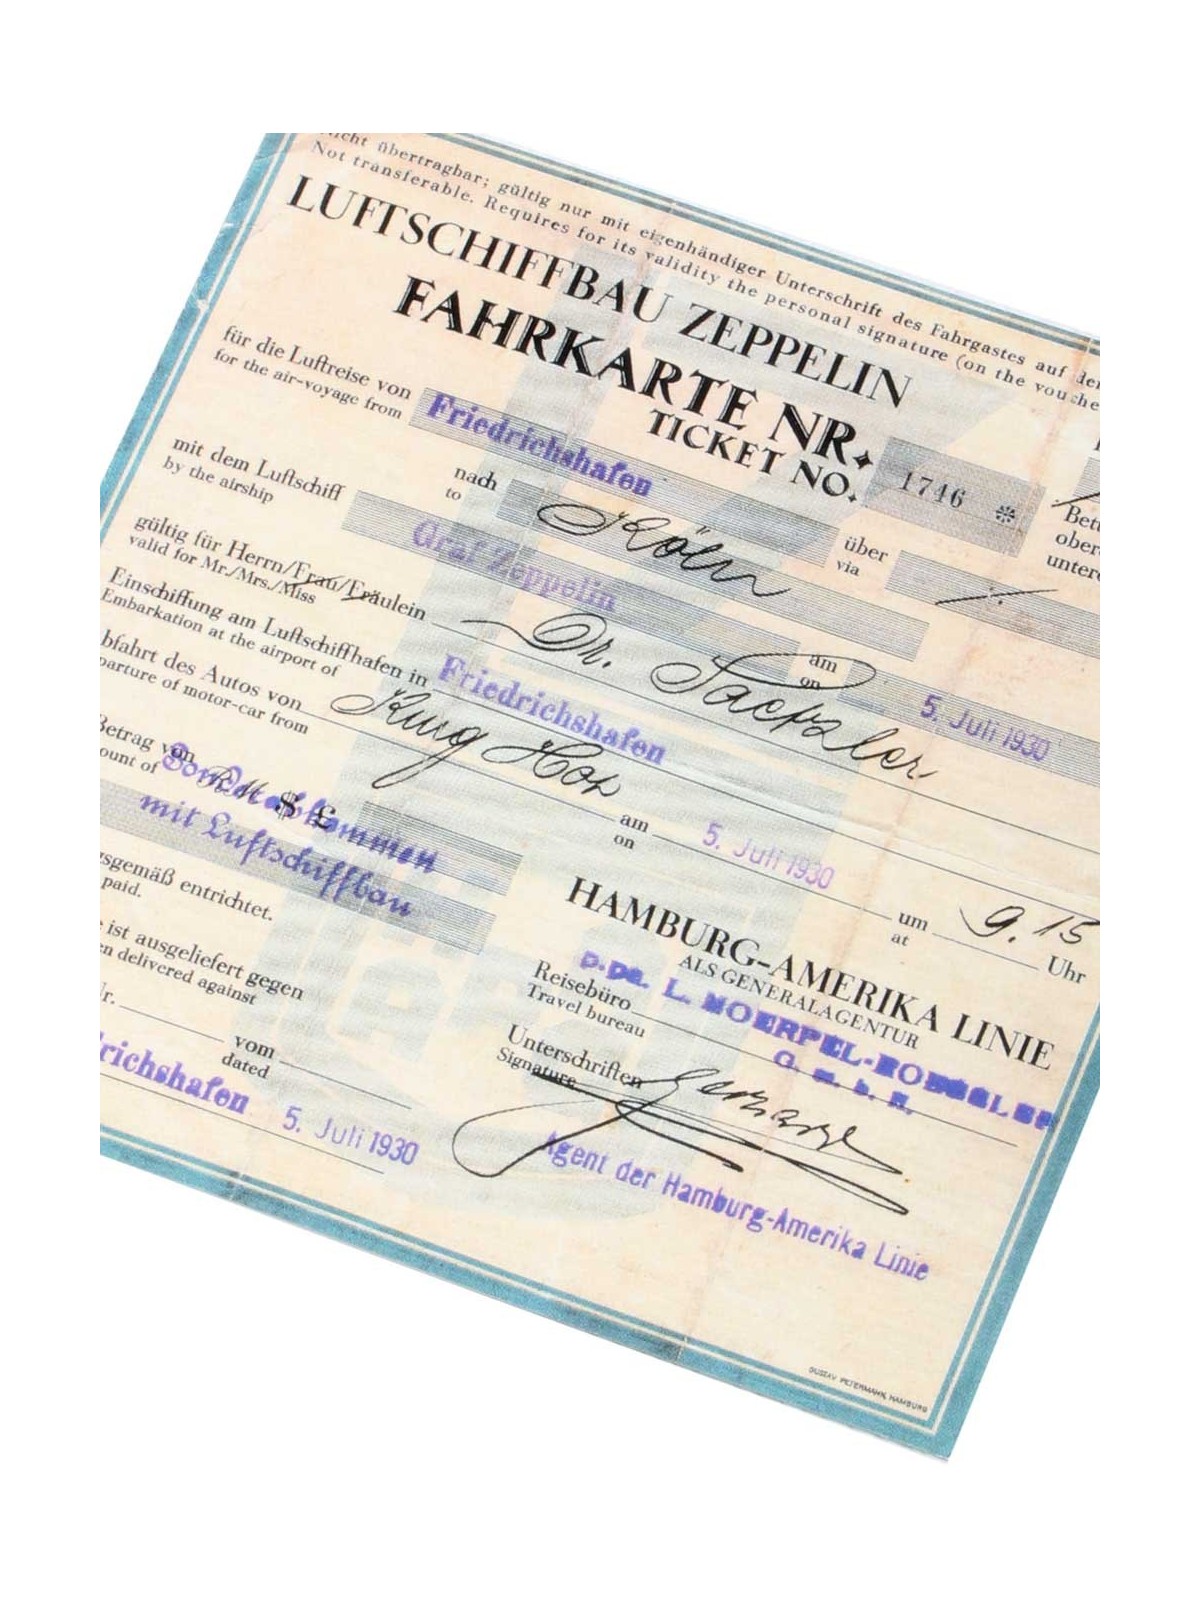 Nicht übertragbar; gültig nur mit eigenhändiger Unterschrift des Fahrgastes auf der
Not transferable. Requires for its validity the personal signature (on the vouche
LUFTSCHIFFBAU ZEPPELIN
FAHRKARTE NR.
TICKET NO. 1746 ※
für die Luftreise von
for the air-voyage from Friedrichshafen
nach
to Köln
über
via
mit dem Luftschiff
by the airship Graf Zeppelin
am
on 5. Juli 1930
gültig für Herrn/Frau/Fräulein
valid for Mr./Mrs./Miss Dr.
Einschiffung am Luftschiffhafen in
Embarkation at the airport of Friedrichshafen
bfahrt des Autos von
parture of motor-car from
am
on 5. Juli 1930
um
at 9.15
Uhr
Betrag von
ount of $ £
Sonderabkommen
mit Luftschiffbau
sgemäß entrichtet.
paid.
ist ausgeliefert gegen
en delivered against
Nr.
vom
dated
richshafen 5. Juli 1930
HAMBURG-AMERIKA LINIE
ALS GENERALAGENTUR
Reisebüro
Travel bureau
G. m. b. H.
Unterschriften
Signature
Agent der Hamburg-Amerika Linie
GUSTAV PETERMANN, HAMBURG
Betr
ober
unter